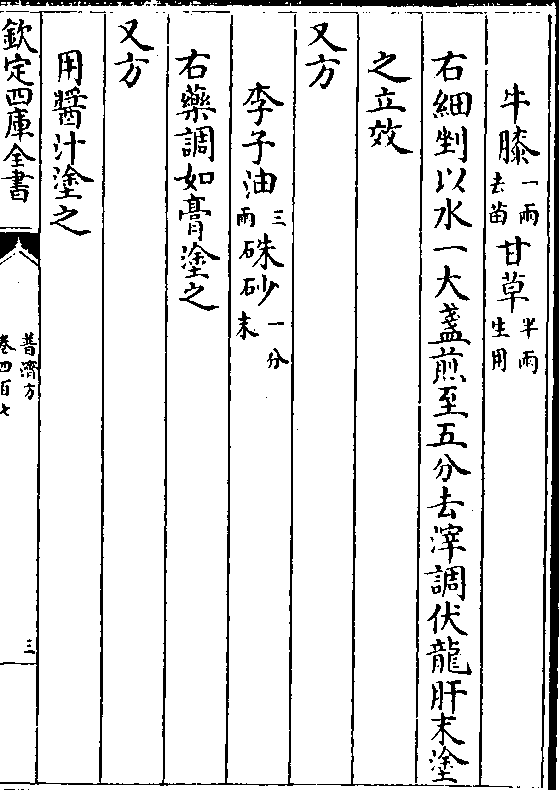 牛膝一兩去苗甘草半兩生用
右細剉以水一大盞煎至五分去滓調伏龍肝末塗
之立效
又方
李子油三兩硃砂一分末
右藥調如膏塗之
又方
用醬汁塗之
欽定四庫全書
普濟方
卷四百七
三